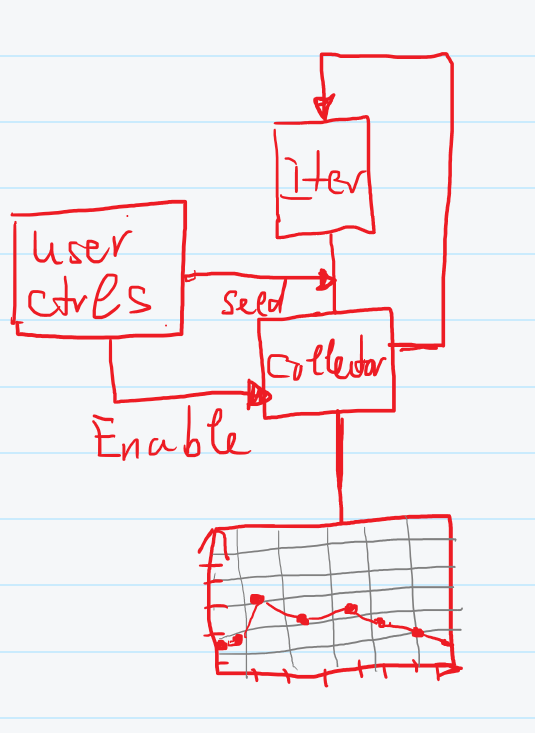 Iter
user
ctrls
seed
Collector
Enable